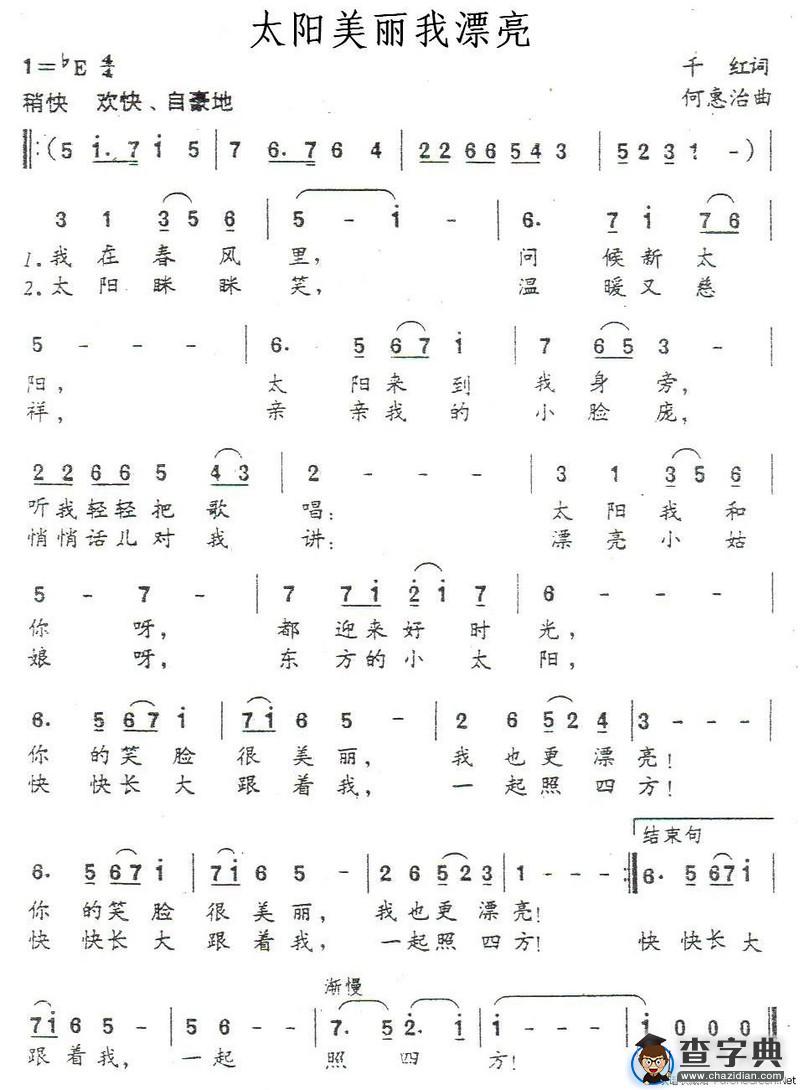 太阳美丽我漂亮
1=♭E 4/4
千 红词
稍快 欢快、自豪地
何惠治曲
‖:(5 i.7 i 5 | 7 6.7 6 4 | 2266543 | 5231 - )|
3 1 3 5 6 | 5 - i - | 6. 7 i 7 6 |
1.我 在 春 风 里, 问 候 新 太
2.太 阳 眯 眯 笑, 温 暖 又 慈
5 - - - | 6. 5 6 7 i | 7 6 5 3 - |
阳, 太 阳来 到 我 身 旁,
祥, 亲 亲我 的 小 脸 庞,
2 2 6 6 5 4 3 | 2 - - - | 3 1 3 5 6 |
听我轻轻把 歌 唱: 太 阳 我 和
悄悄话儿对 我 讲: 漂 亮 小 姑
5 - 7 - | 7 7 i 2 i 7 | 6 - - - |
你 呀, 都 迎来好 时 光,
娘 呀, 东 方的小 太 阳,
6. 5 6 7 i | 7 i 6 5 - | 2 6 5 2 4 | 3 - - - |
你 的笑 脸 很 美 丽, 我 也更 漂 亮!
快 快长 大 跟 着 我, 一 起照 四 方!
结束句
6. 5 6 7 i | 7 i 6 5 - | 2 6 5 2 3 | 1 - - - :‖ 6. 5 6 7 i |
你 的笑 脸 很 美 丽, 我 也更 漂 亮!
快 快长 大 跟 着 我, 一 起照 四 方! 快 快长 大
渐慢
7 i 6 5 - | 5 6 - - | 7. 5 2. i | i - - - | i 0 0 0 ‖
跟 着 我, 一 起 照 四 方!
查字典
www.chazidian.com